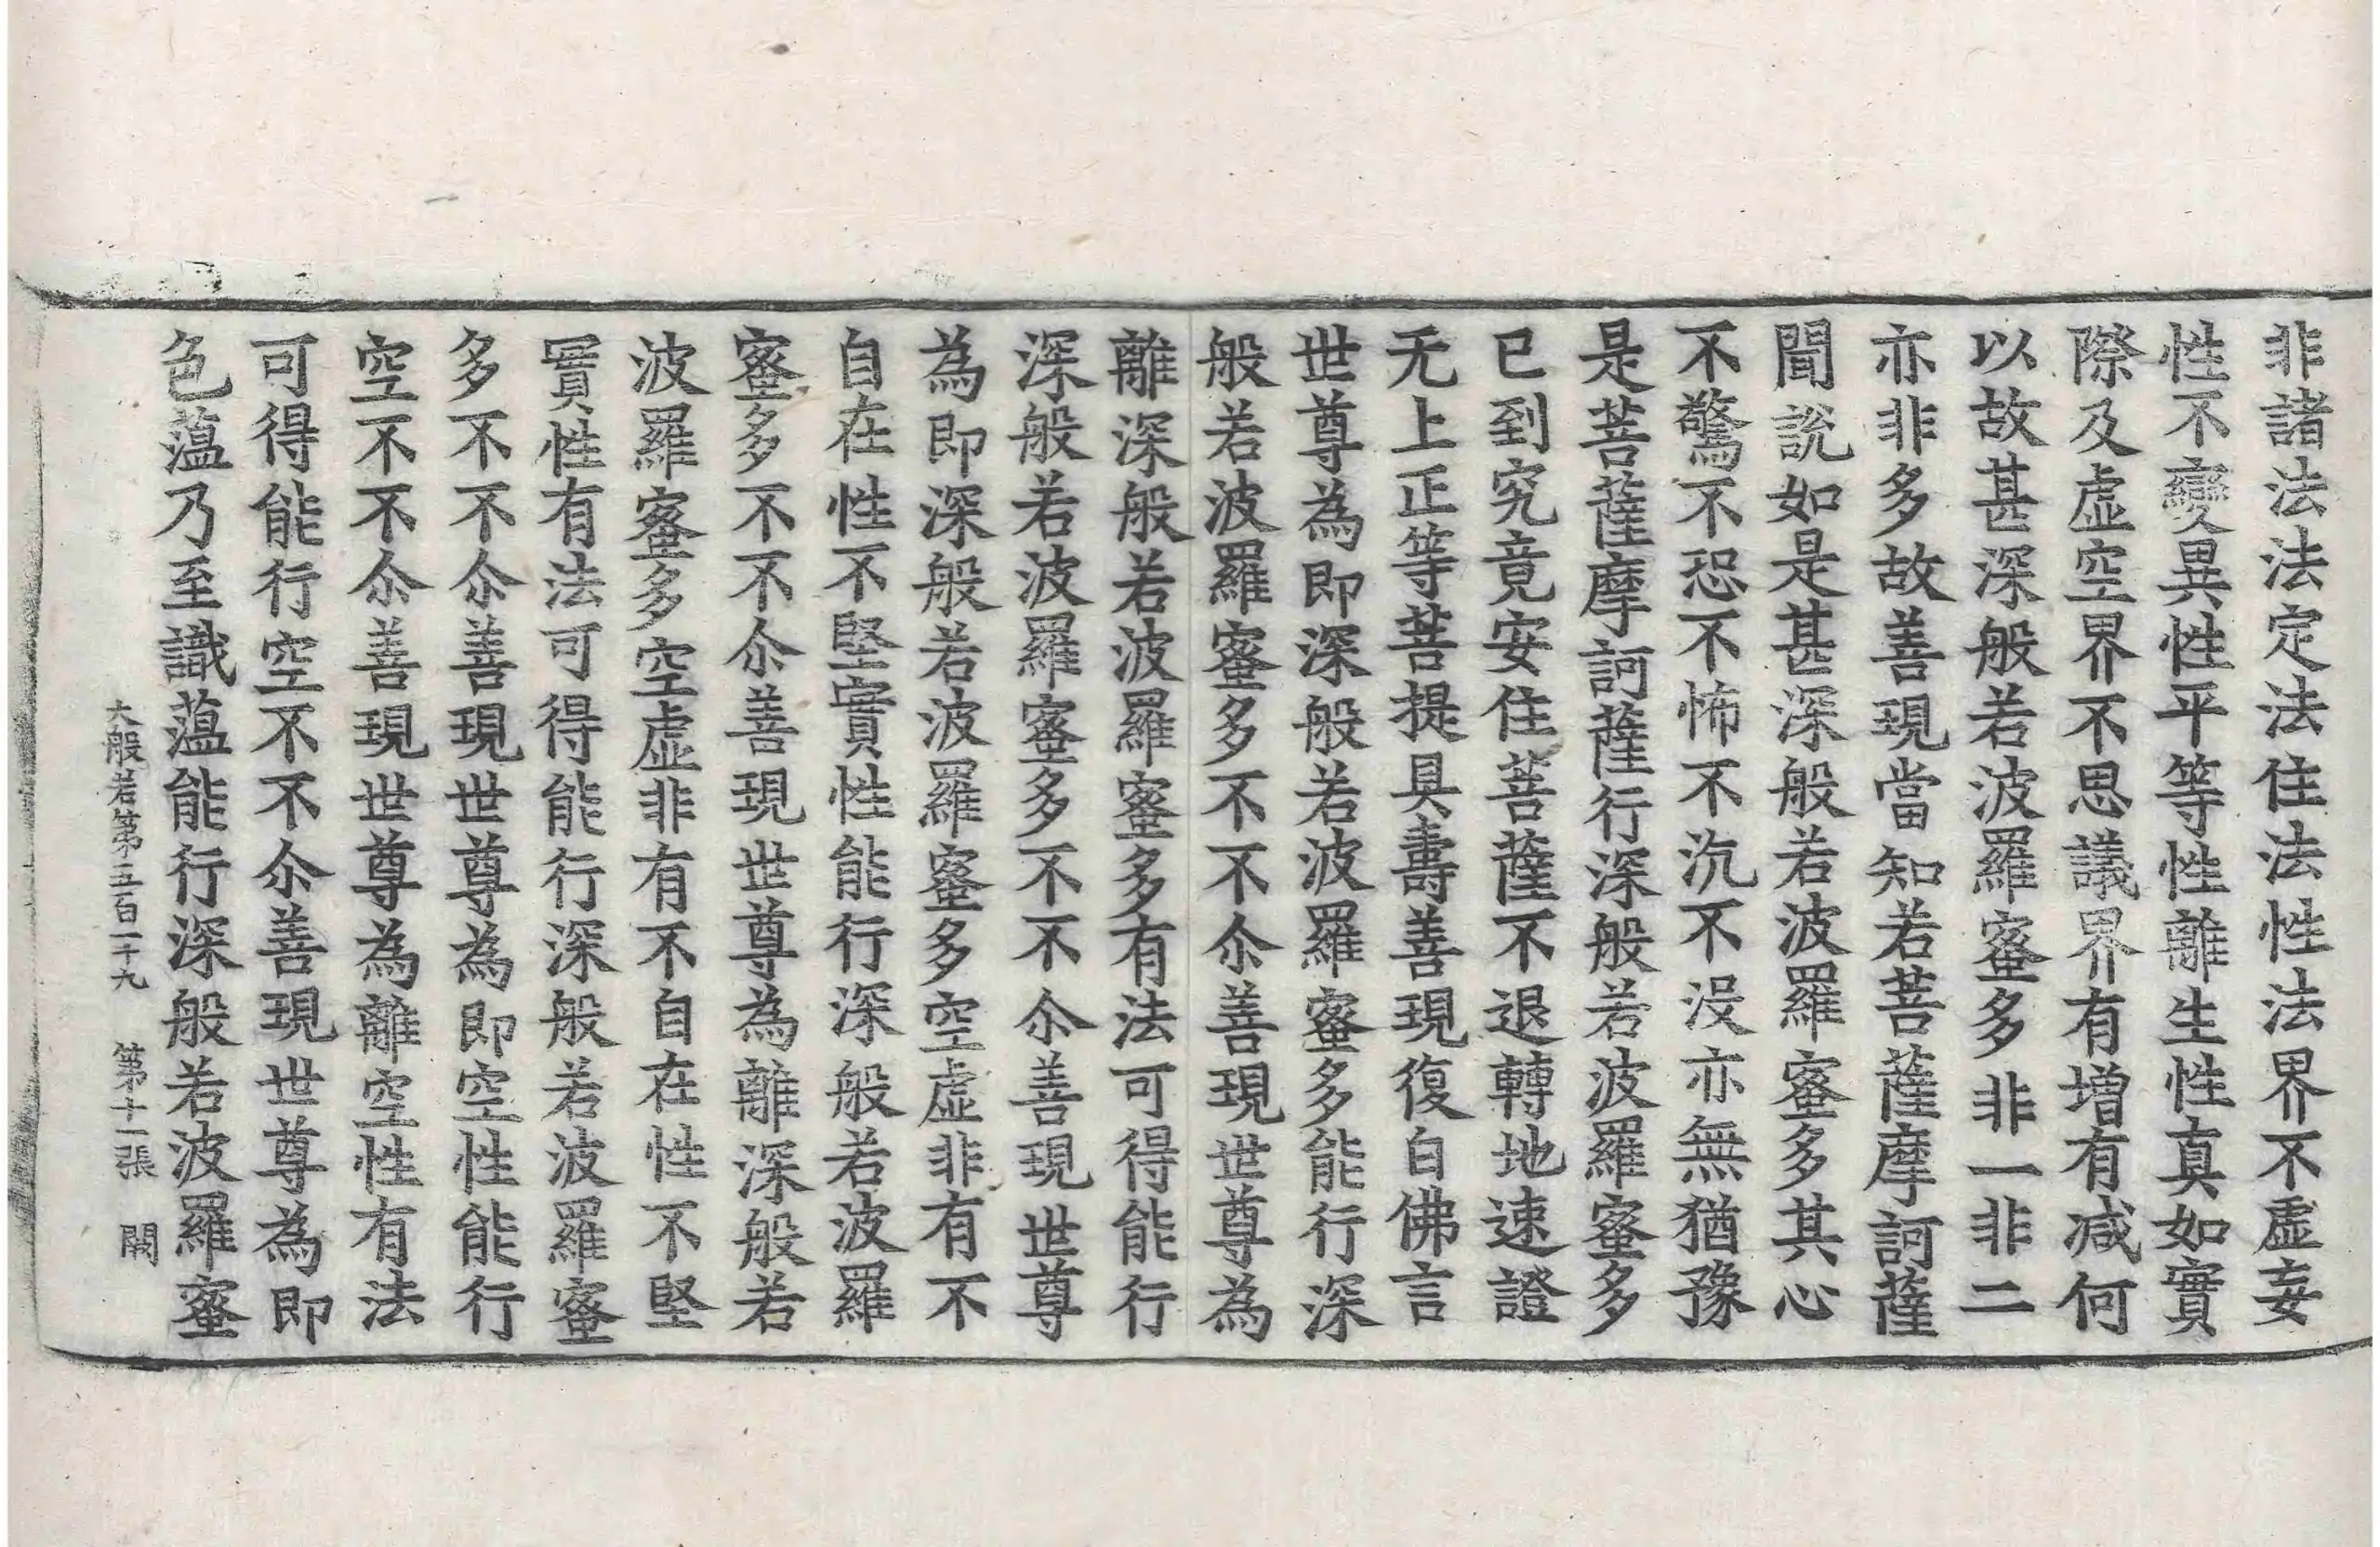 非諸法法定法住法性法界不虛妄
性不變異性平等性離生性真如實
際及虛空界不思議界有增有減何
以故甚深般若波羅蜜多非一非二
亦非多故善現當知若菩薩摩訶薩
聞說如是甚深般若波羅蜜多其心
不驚不恐不怖不沉不没亦無猶豫
是菩薩摩訶薩行深般若波羅蜜多
已到究竟安住菩薩不退轉地速證
无上正等菩提具壽善現復白佛言
世尊為即深般若波羅蜜多能行深
般若波羅蜜多不不尒善現世尊為
離深般若波羅蜜多有法可得能行
深般若波羅蜜多不不尒善現世尊
為即深般若波羅蜜多空虛非有不
自在性不堅實性能行深般若波羅
蜜多不不尒善現世尊為離深般若
波羅蜜多空虛非有不自在性不堅
實性有法可得能行深般若波羅蜜
多不不尒善現世尊為即空性能行
空不不尒善現世尊為離空性有法
可得能行空不不尒善現世尊為即
色薀乃至識薀能行深般若波羅蜜
大般若第五百二十九 第十二張 闕